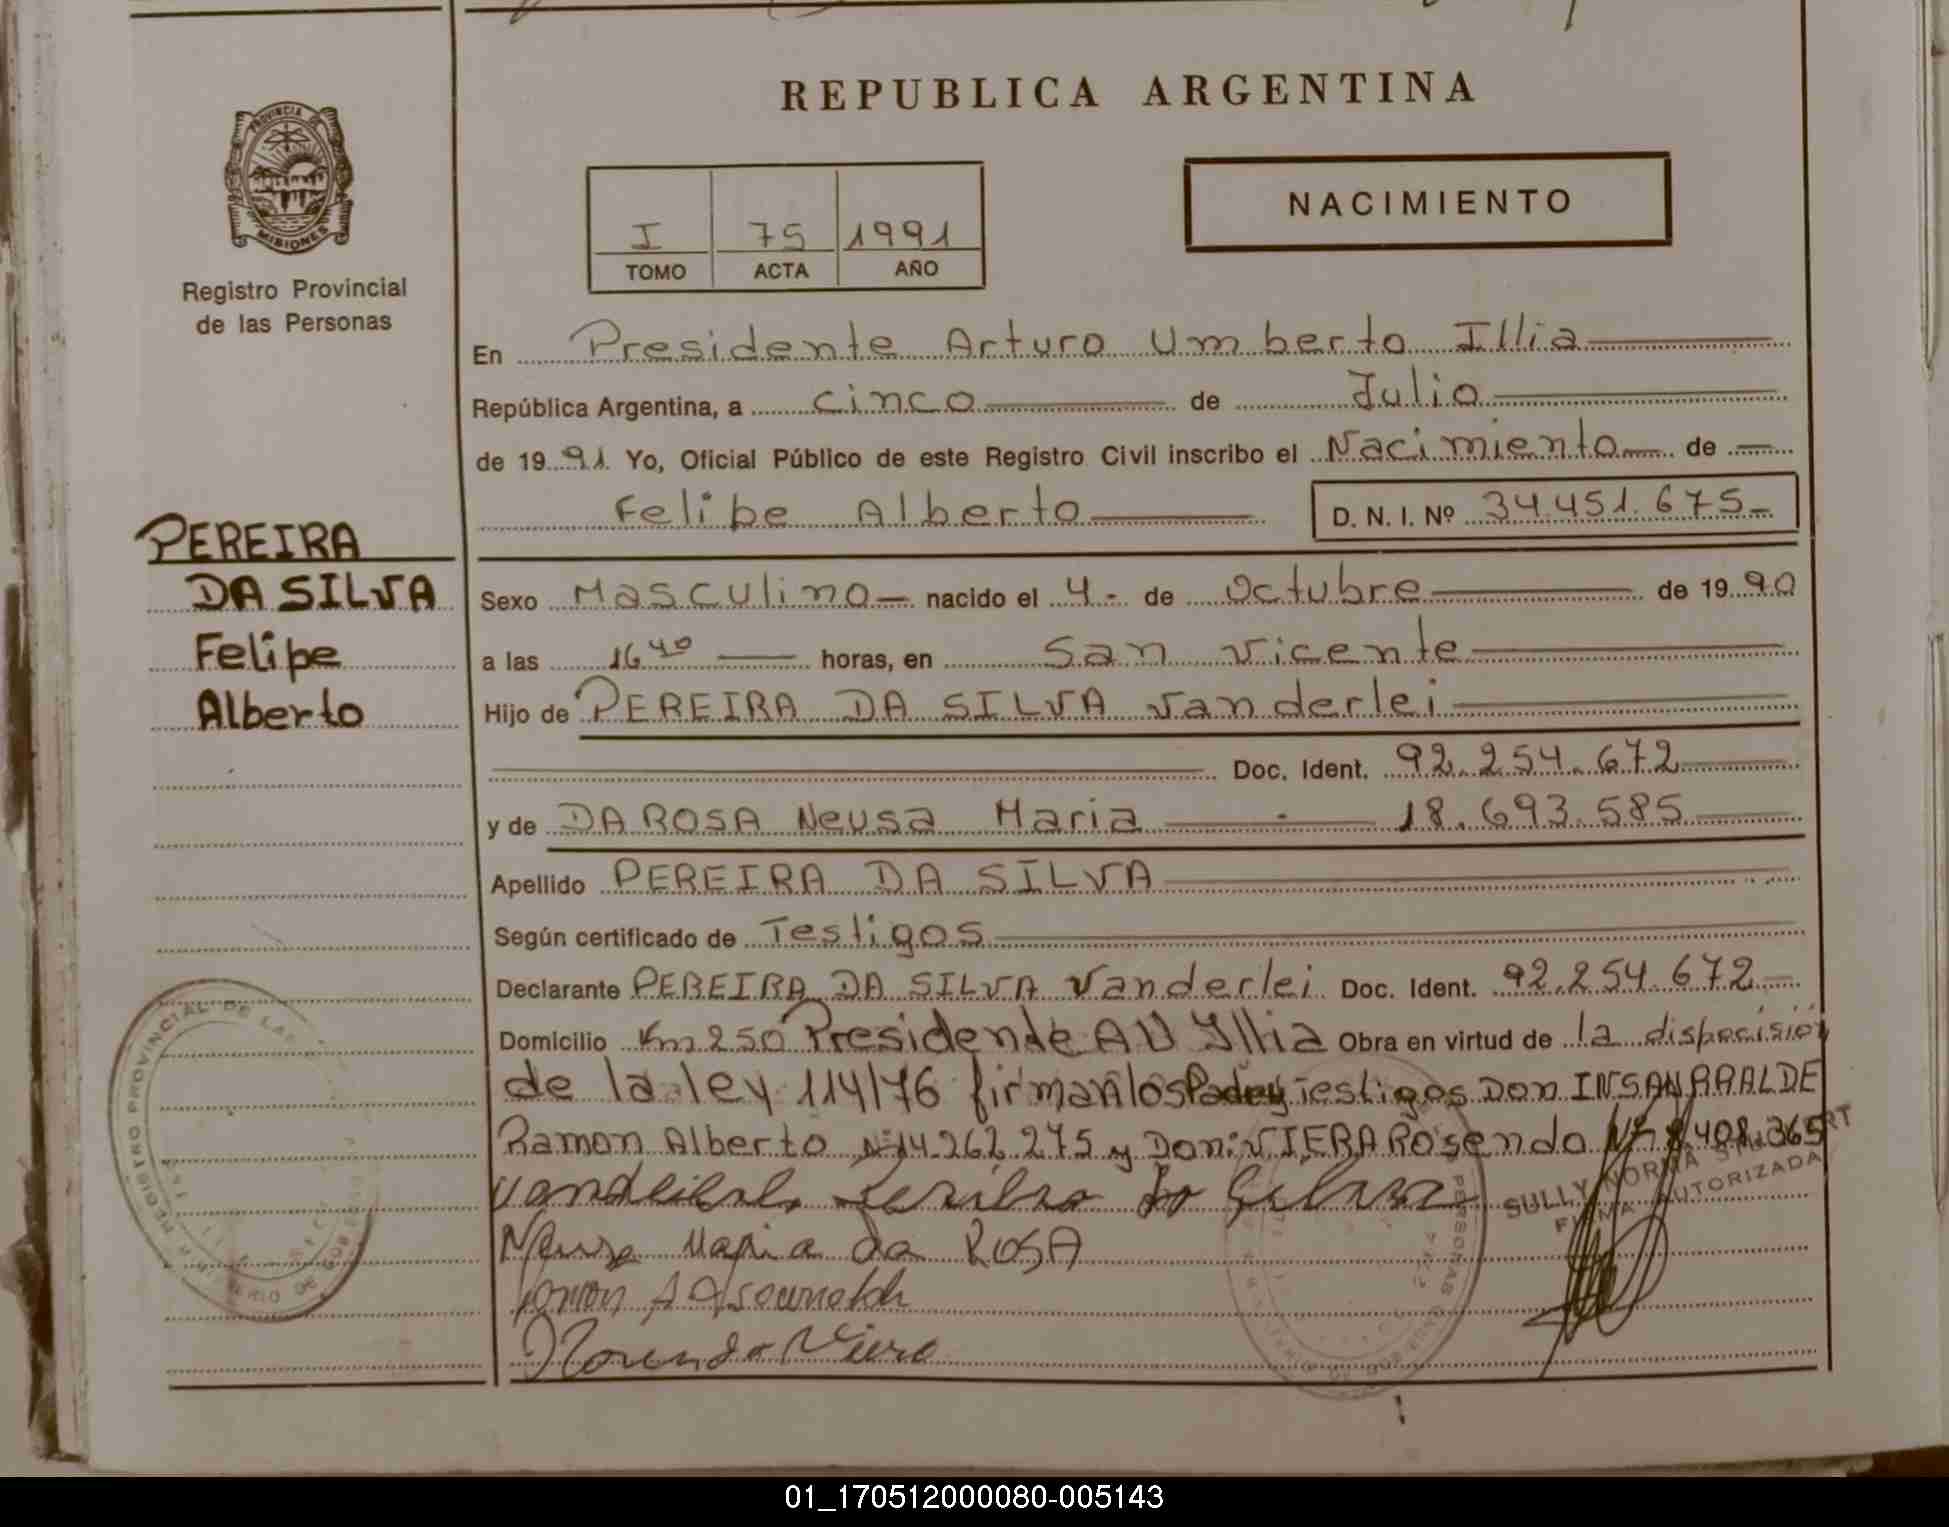 REPUBLICA ARGENTINA
PROVINCIA DE
MISIONES
Registro Provincial
de las Personas
I 75 1991
TOMO ACTA AÑO
NACIMIENTO
En Presidente Arturo Umberto Illia
República Argentina, a cinco de Julio
de 1991. Yo, Oficial Público de este Registro Civil inscribo el Nacimiento de
Felipe Alberto D. N. I. Nº 34.451.675-
PEREIRA
DA SILVA
Felipe
Alberto
Sexo Masculino nacido el 4- de Octubre de 1990
a las 16 40 horas, en San Vicente
Hijo de PEREIRA DA SILVA Vanderlei
Doc. Ident. 92.254.672
y de DA ROSA Neusa Maria - 18.693.585
Apellido PEREIRA DA SILVA
Según certificado de Testigos
Declarante PEREIRA DA SILVA Vanderlei Doc. Ident. 92.254.672
Domicilio Km 250 Presidende A U Illia Obra en virtud de la dispocisión
de la ley 114/76 firman los Testigos Don INSAURRALDE
Ramon Alberto Nº 14.262.275 y Don: VIERA Rosendo Nº 8.408.365
SULLY NORMA
FIRMA AUTORIZADA
Neusa Maria da ROSA
REGISTRO PROVINCIAL DE LAS
PERSONAS
01_170512000080-005143